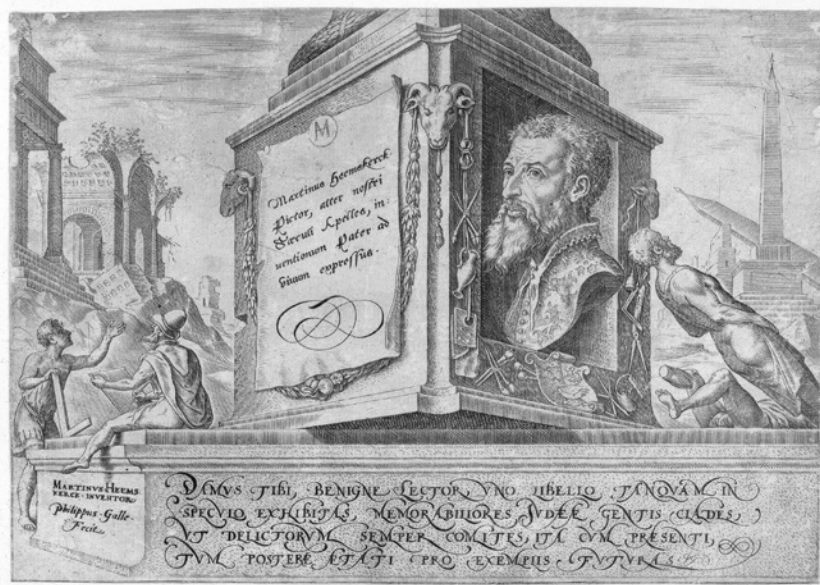 M
Martinus Heemskerck
Pictor, alter nostri
Sæculi Apelles, in:
uentionum Pater ad
viuum expressus.
MARTINVS HEEMS
KERCK INVENTOR
Philippus Galle
Fecit
DAMVS TIBI, BENIGNE LECTOR, VNO LIBELLO TANQVAM IN
SPECVLO EXHIBITAS, MEMORABILIORES JVDEÆ GENTIS CLADES,
VT DELICTORVM SEMPER COMITES, ITA CVM PRESENTI,
TVM POSTERE ETATI PRO EXEMPLIS FVTVRAS